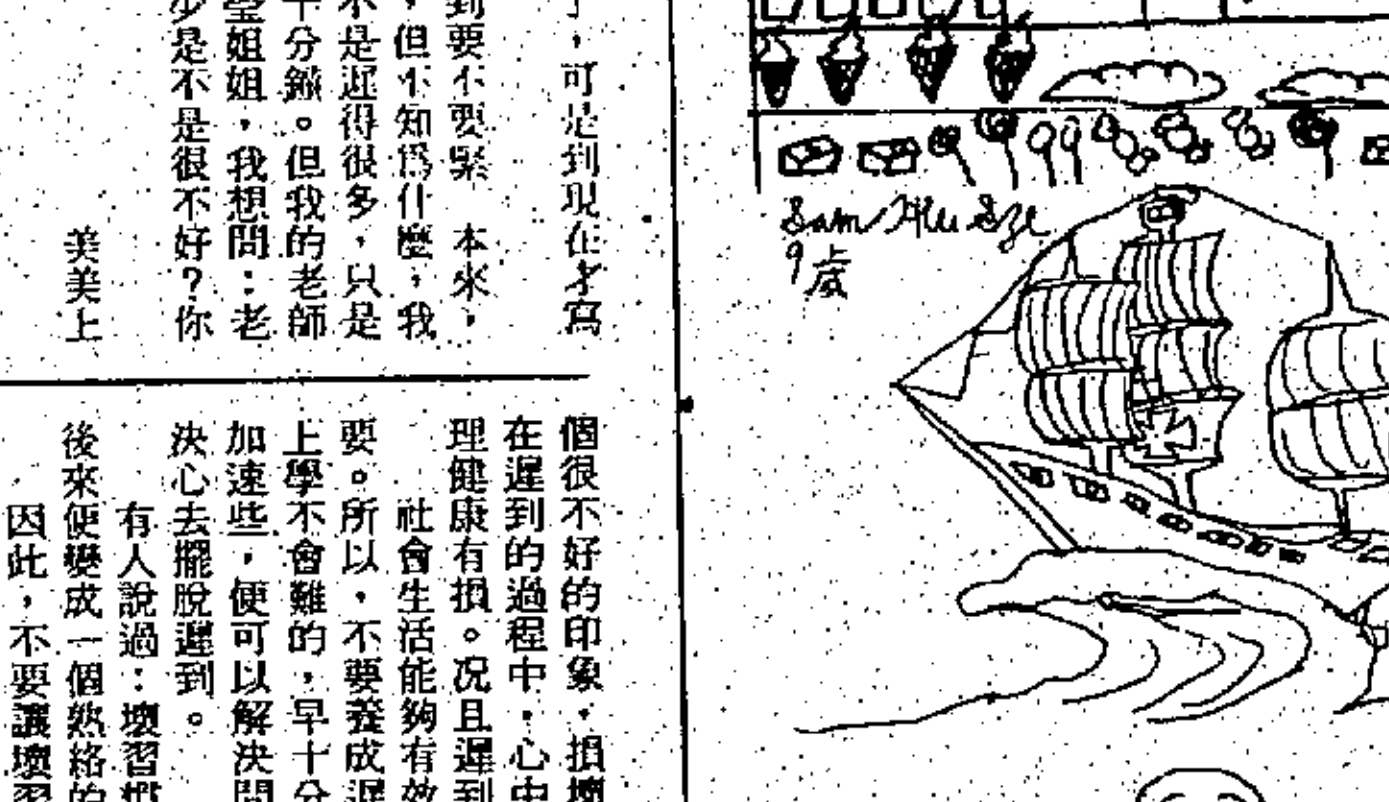 ，可是到現在才寫
到要不要緊　本來，
，但不知爲什麼，我
不是遲得很多，只是
十分鐘。但我的老師
瑩姐姐，我想問：老
少是不是很不好？你
美美上
個很不好的印象，損壞
在遲到的過程中，心中
理健康有損。况且遲到
社會生活能夠有效
要。所以，不要養成遲
上學不會難的，早十分
加速些，便可以解決問
決心去擺脫遲到。
有人說過：壞習慣
後來便變成一個熟絡的
因此，不要讓壞習
Sam
9歲